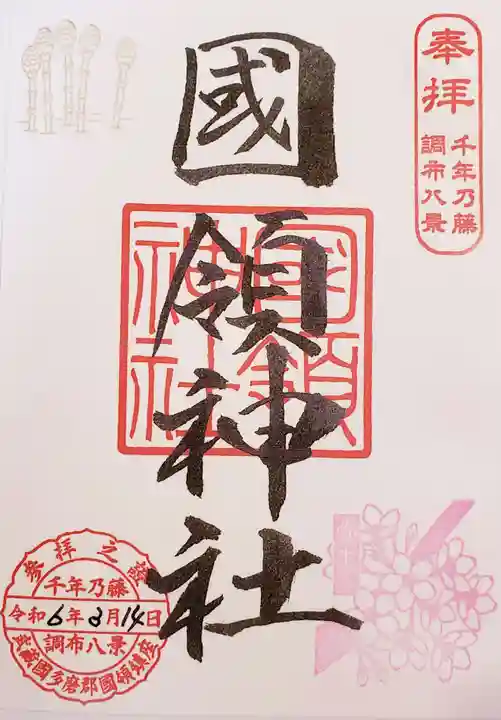 奉拝
千年乃藤
調布八景
國領神社
國領
神社
参拝之證
千年乃藤
令和6年3月14日
調布八景
武蔵國多磨郡國領鎮座